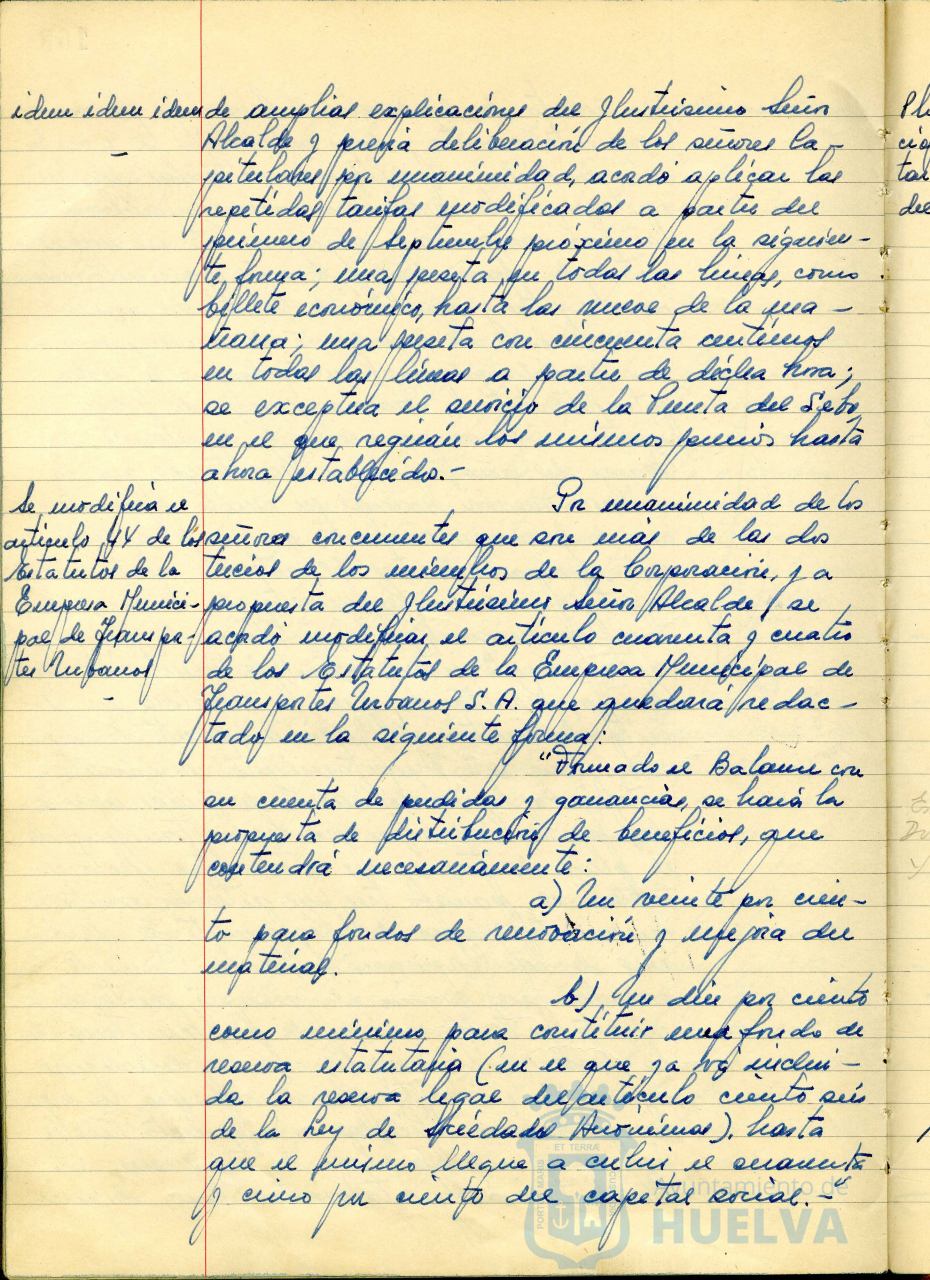 idem idem idem
—
de amplias explicaciones del Ilustrisimo Señor
Alcalde y previa deliberación de los señores Ca-
pitulares por unanimidad, acordó aplicar las
repetidas tarifas modificadas a partir del
primero de Septiembre próximo en la siguien-
te forma; una peseta en todas las lineas, como
billete económico, hasta las nueve de la ma-
ñana; una peseta con cincuenta centimos
en todas las lineas a partir de dicha hora;
se exceptua el servicio de la Punta del Sebo,
en el que regirán los mismos precios hasta
ahora establecido.-
Se modifica el
artículo 44 de los
Estatutos de la
Empresa Munici-
pal de Transpor-
tes Urbanos
—
Por unanimidad de los
señores concurrentes que son más de las dos
tercios de los miembros de la Corporación, y a
propuesta del Ilustrisimo Señor Alcalde, se
acordó modificar el artículo cuarenta y cuatro
de los Estatutos de la Empresa Municipal de
Transportes Urbanos S. A. que quedará redac-
tado en la siguiente forma:
"Formado el Balance con
su cuenta de perdidas y ganancias, se hará la
propuesta de distribución de beneficios, que
contendrá necesariamente:
a) Un veinte por cien-
to para fondos de renovación y mejora del
material.
b) Un diez por ciento
como mínimo para constituir una fondo de
reserva estatutaria (en el que ya vá inclui-
da la reserva legal del artículo ciento seis
de la Ley de Sociedades Anónimas), hasta
que el mismo llegue a cubrir el cuarenta
y cinco por ciento del capital social.-"
ET TERRÆ
Ayuntamiento de
HUELVA